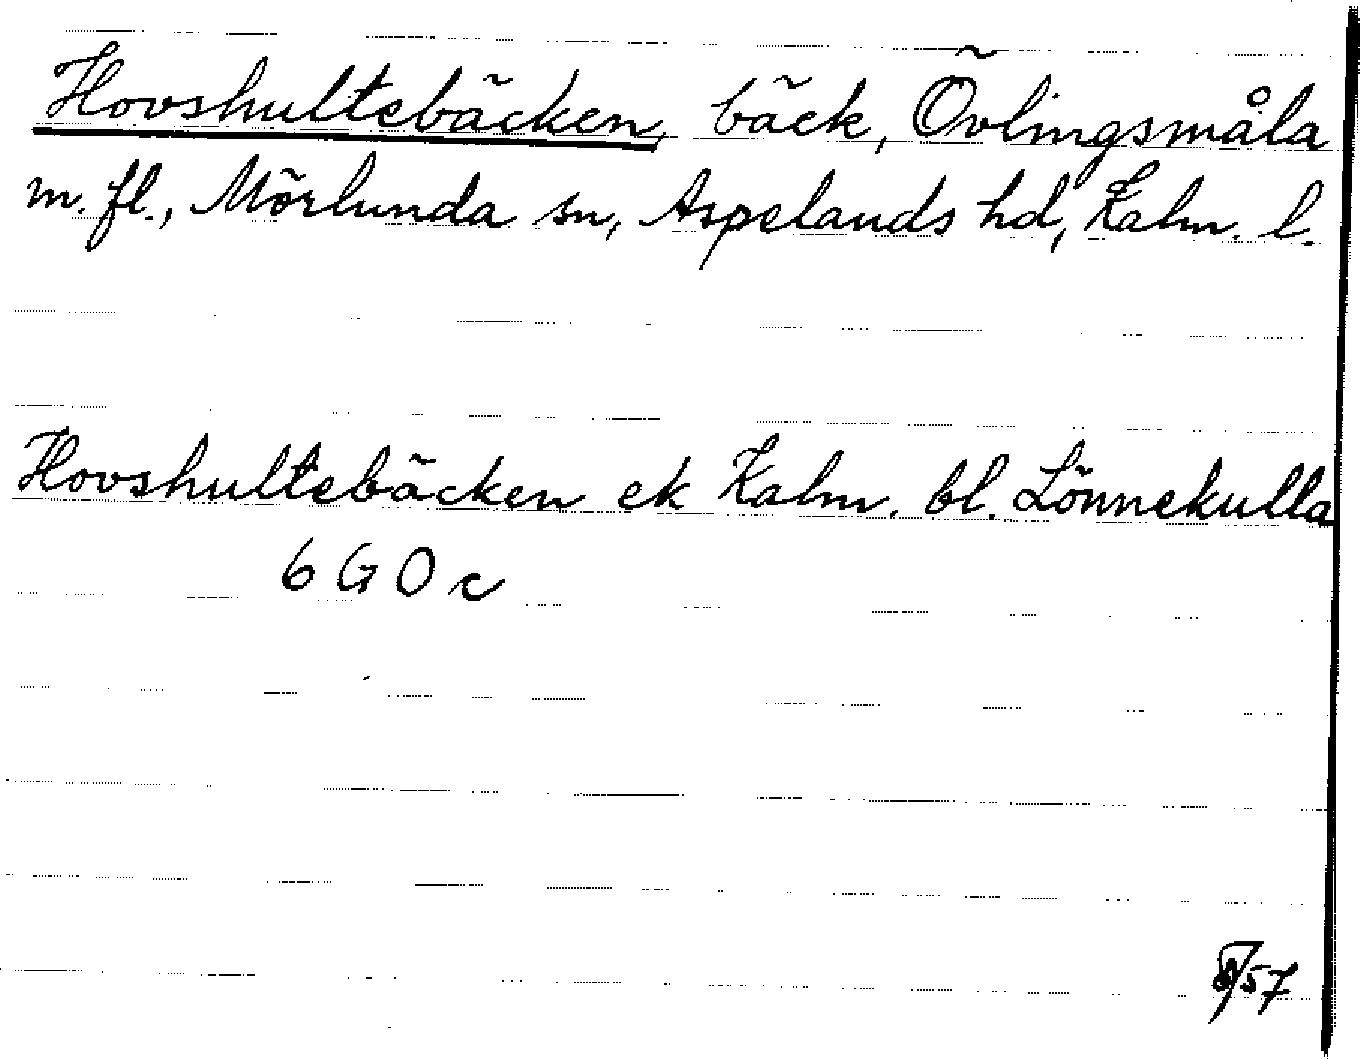 Hovshultebäcken, bäck, Övlingsmåla
m. fl., Mörlunda sn, Aspelands hd, Kalm. l.
Hovshultebäcken ek Kalm. bl. Lönnekulla
6 G O c